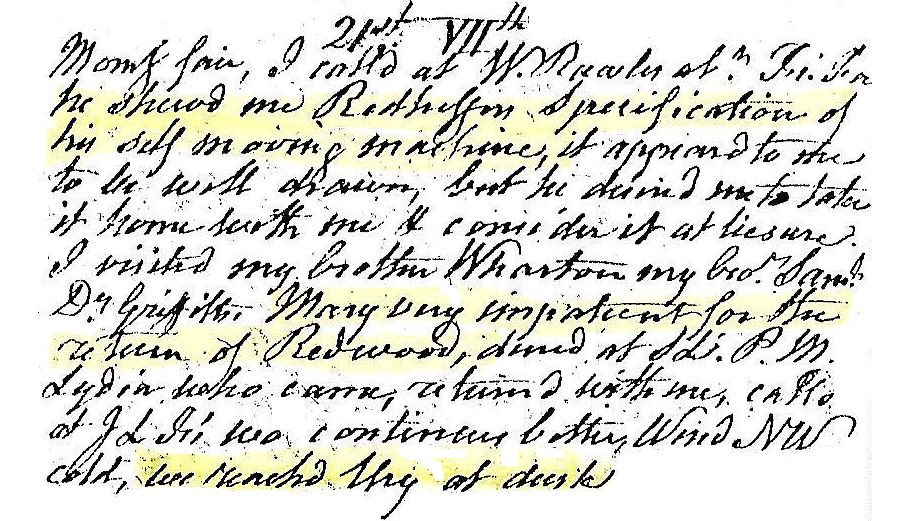 21st VIIth
Morng fair, I calld at W. Rawles stn
he shewd me Redheffers Specification of
his self moving machine, it appeard to me
to be well drawn, but he desired me to take
it home with me & consider it at liesure.
I visited my brother Wharton my Bror Saml
Dr Griffitts. Mary very impatient for the
return of Redwood, dined at P. M.
Lydia who came, returnd with me, calld
at J L continues better, Wind NW
cold, we reachd at dusk